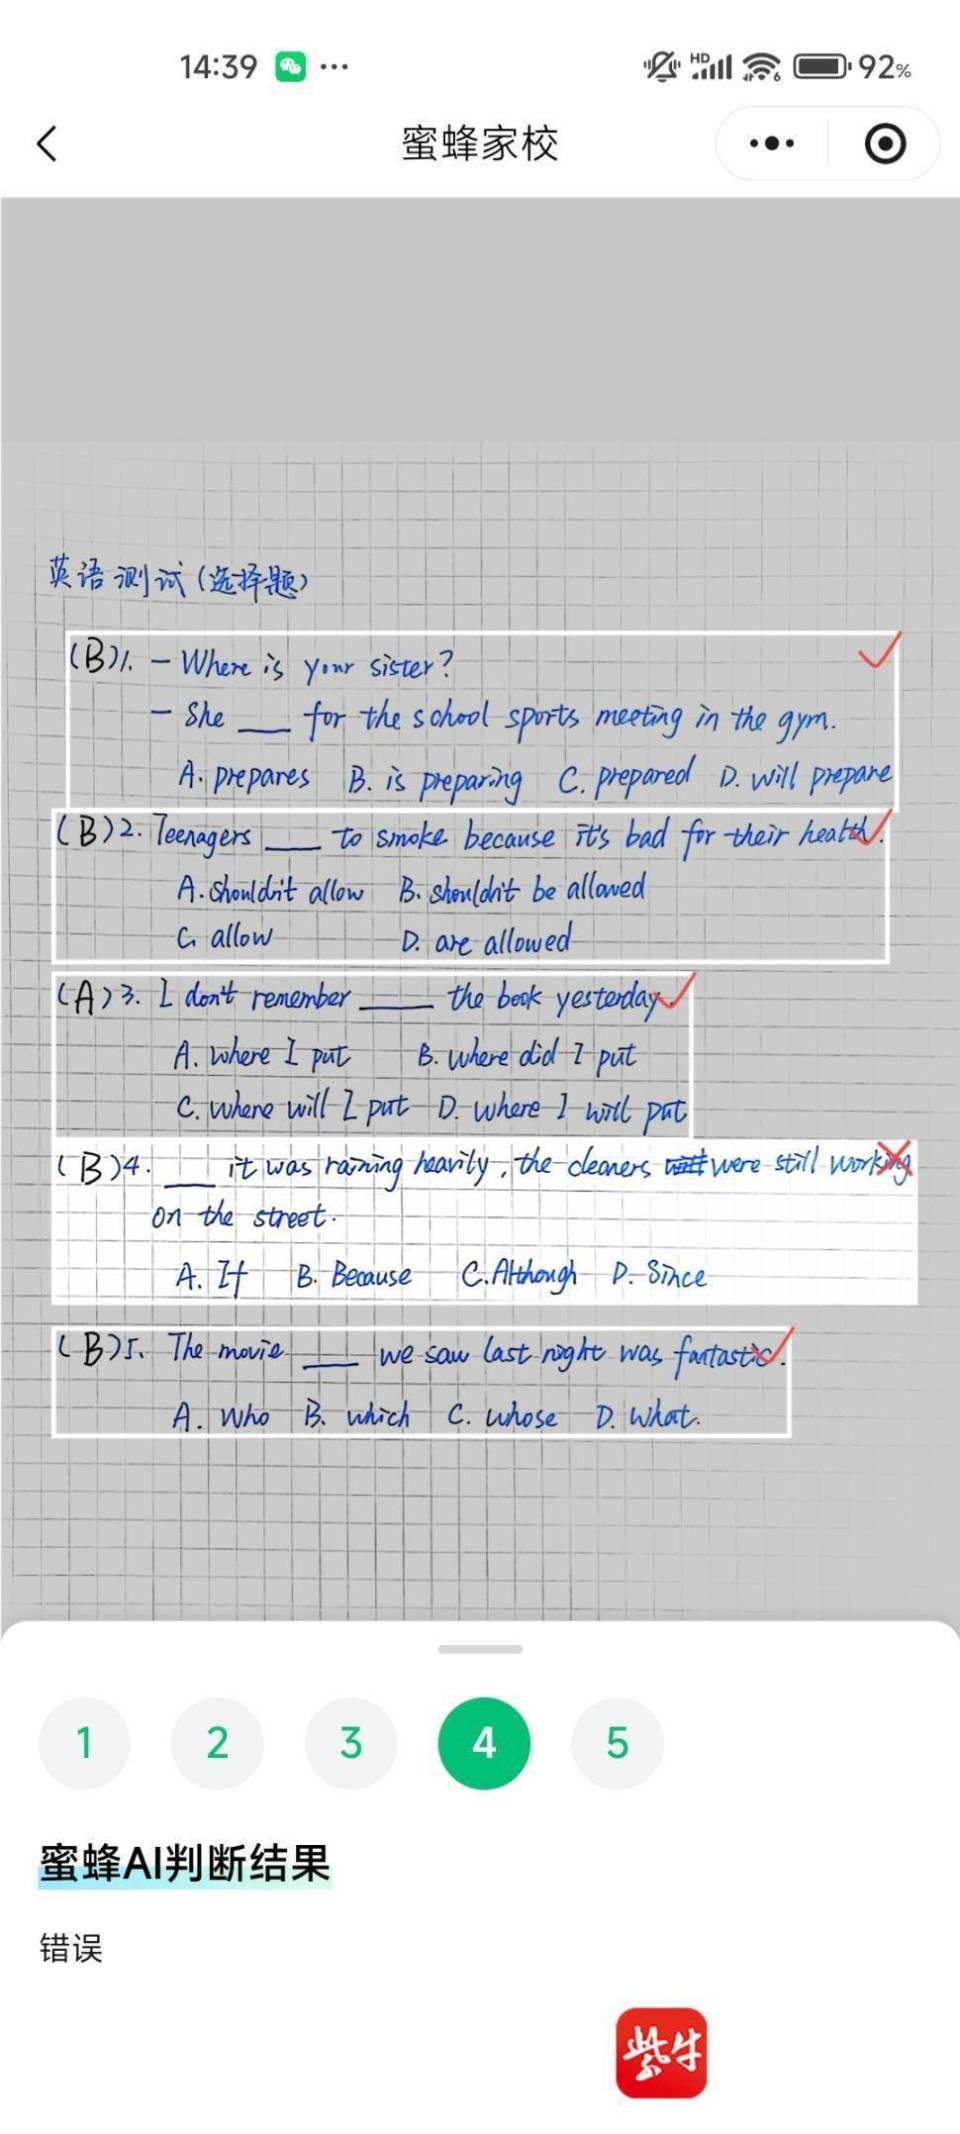 14:39
HD
6
92%
蜜蜂家校
英语测试(选择题)
(B)1. - Where is your sister?
- She ___ for the school sports meeting in the gym.
A. prepares B. is preparing C. prepared D. will prepare
(B)2. Teenagers ___ to smoke because it's bad for their health.
A. shouldn't allow B. shouldn't be allowed
C. allow D. are allowed
(A)3. I don't remember ___ the book yesterday.
A. where I put B. where did I put
C. where will I put D. where I will put
(B)4. ___ it was raining heavily, the cleaners were still working
on the street.
A. If B. Because C. Although D. Since
(B)5. The movie ___ we saw last night was fantastic.
A. who B. which C. whose D. what.
1 2 3 4 5
蜜蜂AI判断结果
错误
紫牛